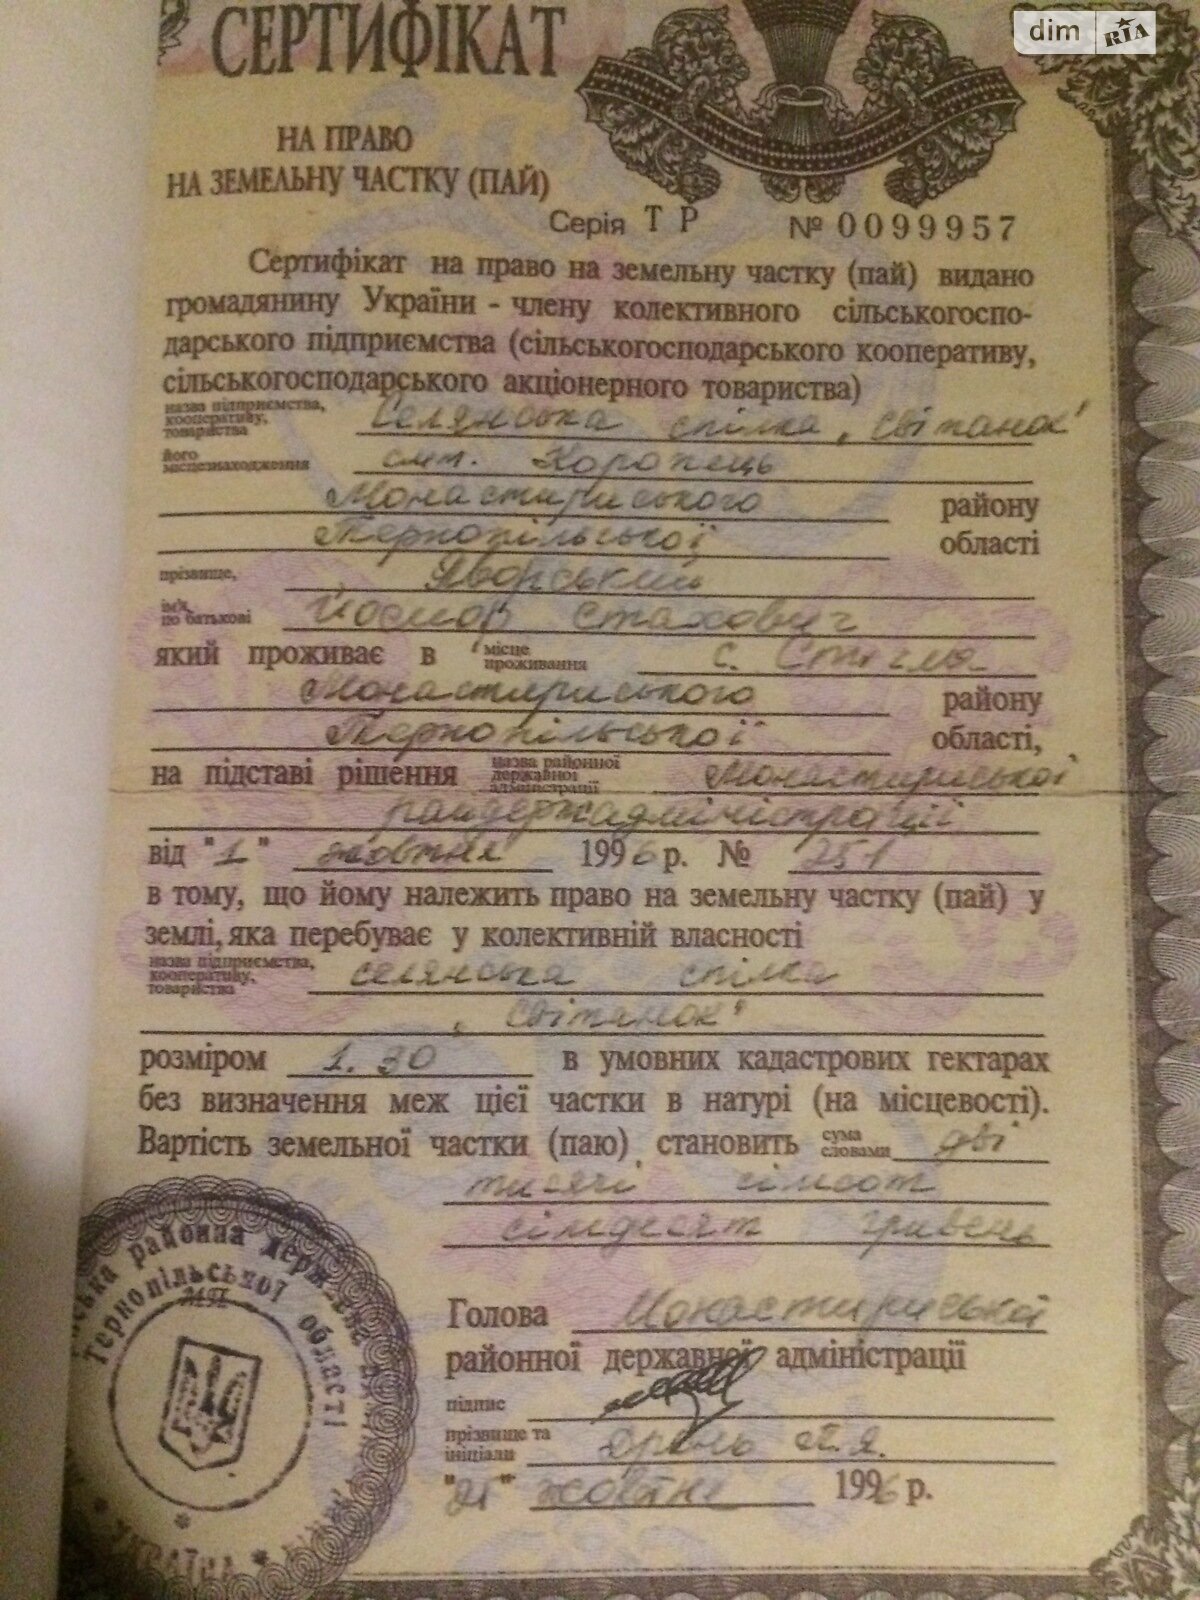 dim RIA
СЕРТИФІКАТ
НА ПРАВО
НА ЗЕМЕЛЬНУ ЧАСТКУ (ПАЙ)
Серія ТР № 0099957
Сертифікат на право на земельну частку (пай) видано
громадянину України - члену колективного сільськогоспо-
дарського підприємства (сільськогосподарського кооперативу,
сільськогосподарського акціонерного товариства)
назва підприємства, кооперативу, товариства Селянська спілка „Світанок"
його місцезнаходження смт. Коропець
Монастириського району
Тернопільської області
прізвище, Яворський
ім'я, по батькові Йосип Стахович
який проживає в місце проживання с.
Монастириського району
Тернопільської області,
на підставі рішення назва районної державної адміністрації Монастириської
райдержадміністрації
від "1" жовтня 1996 р. № 251
в тому, що йому належить право на земельну частку (пай) у
землі, яка перебуває у колективній власності
назва підприємства, кооперативу, товариства селянська спілка
„Світанок"
розміром 1.30 в умовних кадастрових гектарах
без визначення меж цієї частки в натурі (на місцевості).
Вартість земельної частки (паю) становить сума словами дві
тисячі сімсот
сімдесят гривень
Голова Монастириської
районної державної адміністрації
підпис
прізвище та ініціали
"21" жовтня 1996 р.
районна держ
Тернопільської області
УКРАЇНА